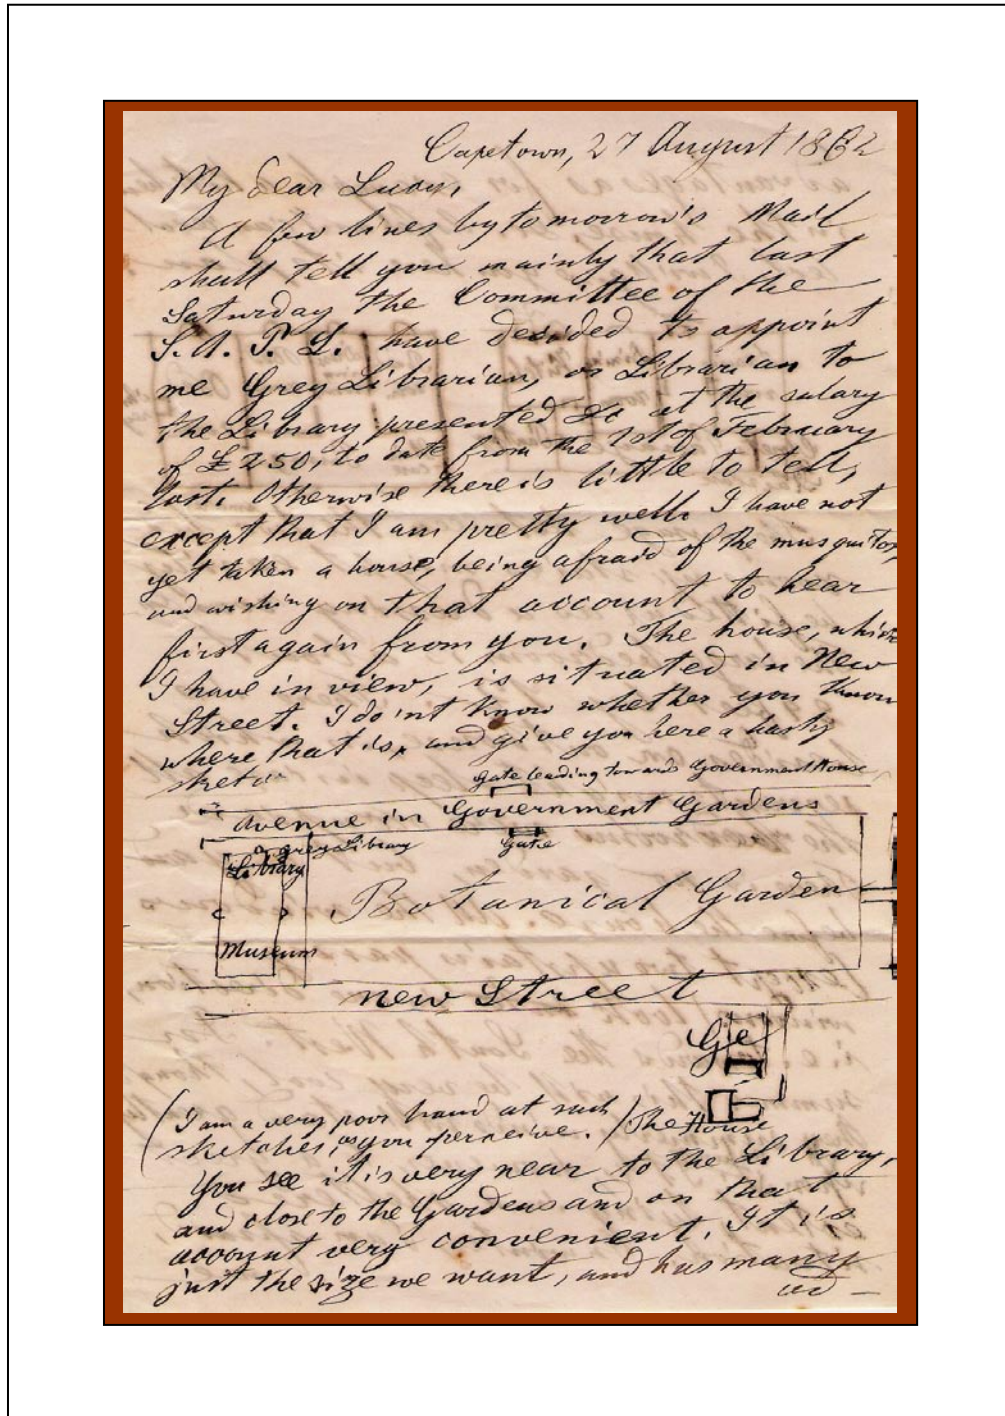 Capetown, 27 August 1862
My dear Lucy,
A few lines by tomorrow's Mail
shall tell you mainly that last
Saturday the Committee of the
S. A. P. L. have decided to appoint
me Grey Librarian, or Librarian to
the Library presented at the salary
of £250, to date from the 1st of February
last. Otherwise there is little to tell,
except that I am pretty well. I have not
yet taken a house, being afraid of the musquitos,
and wishing on that account to hear
first again from you. The house, which
I have in view, is situated in New
Street. I do'nt know whether you know
where that is, and give you here a hasty
sketch
Gate leading towards Government House
Avenue in Government Gardens
Grey Library
Gate
Library
Botanical Garden
Museum
New Street
(I am a very poor hand at such
sketches, as you perceive.)
The House
You see it is very near to the Library,
and close to the Gardens and on that
account very convenient. It is
just the size we want, and has many
ad-